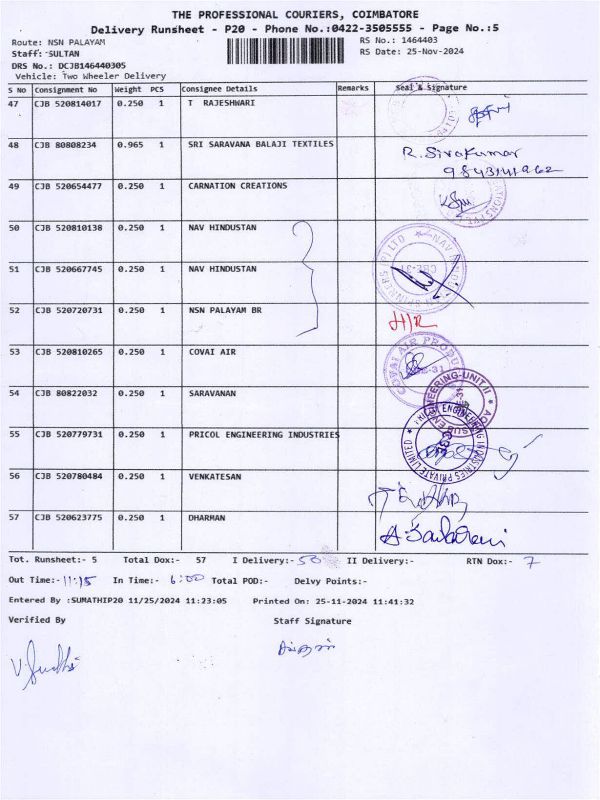 THE PROFESSIONAL COURIERS, COIMBATORE
Delivery Runsheet - P20 - Phone No.:0422-3505555 - Page No.:5
Route: NSN PALAYAM
RS No.: 1464403
Staff: SULTAN
RS Date: 25-Nov-2024
DRS No.: DCJB146440305
Vehicle: Two Wheeler Delivery
S No Consignment No Weight PCS Consignee Details Remarks Seal & Signature
47 CJB 520814017 0.250 1 T RAJESHWARI
48 CJB 80808234 0.965 1 SRI SARAVANA BALAJI TEXTILES R. Sivakumar
9843141962
49 CJB 520654477 0.250 1 CARNATION CREATIONS
50 CJB 520810138 0.250 1 NAV HINDUSTAN
51 CJB 520667745 0.250 1 NAV HINDUSTAN
52 CJB 520720731 0.250 1 NSN PALAYAM BR H/R
53 CJB 520810265 0.250 1 COVAI AIR
54 CJB 80822032 0.250 1 SARAVANAN
55 CJB 520779731 0.250 1 PRICOL ENGINEERING INDUSTRIES
56 CJB 520780484 0.250 1 VENKATESAN
57 CJB 520623775 0.250 1 DHARMAN
Tot. Runsheet:- 5 Total Dox:- 57 I Delivery:- 50 II Delivery:- RTN Dox:- 7
Out Time:- 11:15 In Time:- 6:00 Total POD:- Delvy Points:-
Entered By :SUMATHIP20 11/25/2024 11:23:05 Printed On: 25-11-2024 11:41:32
Verified By Staff Signature